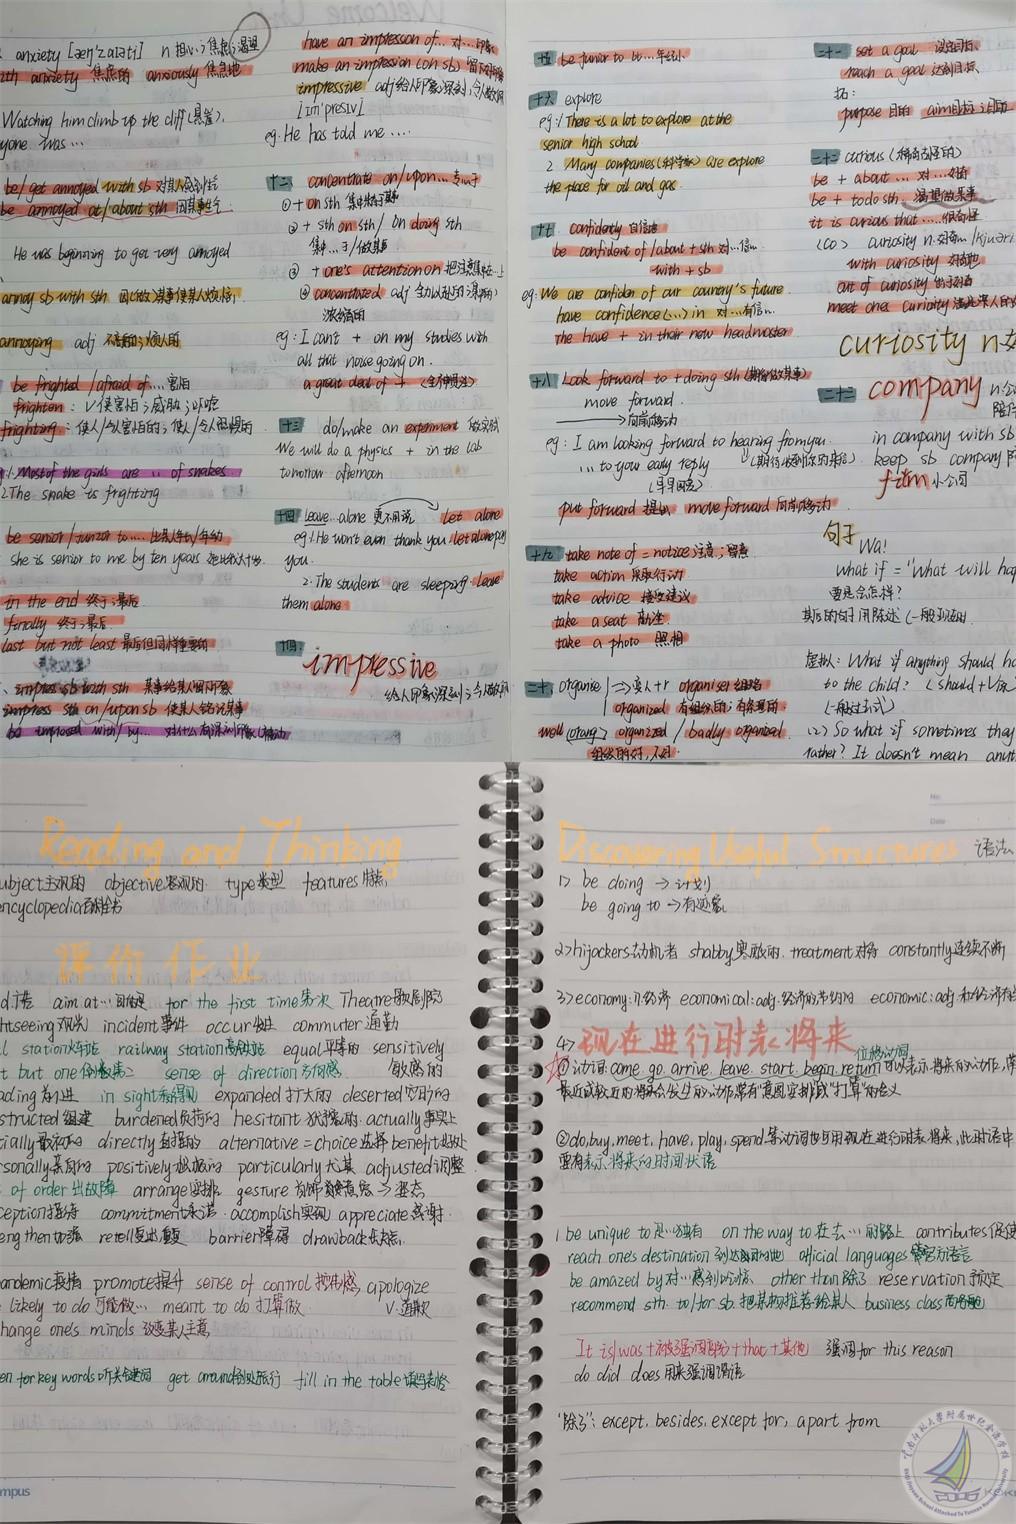 anxiety [æŋ'zaiəti] n 担心;焦虑;渴望
with anxiety 焦虑的 anxiously 焦急地
Watching him climb up the cliff(悬崖),
yone was ...
be/get annoyed with sb 对某人感到生气
be annoyed at/about sth 因某事生气
He was beginning to get very annoyed
annoy sb with sth
annoying adj
be frighted/afraid of ... 害怕
frighten: v 使害怕;威胁;吓唬
frighting:
1. Most of the girls are ... of snakes
2. The snake is frighting
be senior/junior to ...
she is senior to me by ten years
in the end 终于;最后
finally 终于;最后
last but not least
impress sb with sth 某事给某人留下印象
impress sth on/upon sb 使某人铭记某事
have an impresson of... 对...印象
make an impression (on sb)
impressive adj
[im'presiv]
eg: He has told me ....
十二、concentrate on/upon ... 专心于
①+ on sth
②+ sth on sth / on doing sth
集中...于/做某事
③ + one's attention on
④ concentrated adj
eg: I can't + on my studies with
all that noise going on.
a great deal of +
十三 do/make an experiment 做实验
We will do a physics + in the lab
tomorrow afternoon
十四 leave...alone 更不用说 let alone
eg 1. He won't even thank you, let alone pay
you.
2. The students are sleeping. leave
them alone
十四: impressive
十五 be junior to
十六 explore
eg: 1 There is a lot to explore at the
senior high school
2. Many companies(科学家) are explore
the place for oil and gas.
十七 confidently 自信地
be confident of/about + sth 对...信...
with + sb
eg: We are confiden of our country's future.
have confidence(...) in 对...有信...
the have + in their new headmaster
十八 Look forward to + doing sth (期待做某事)
move forward.
→向前移动
eg: I am looking forward to hearing from you.
... to your early reply
put forward 提出 move forward 向前移动
十九 take note of = notice 注意;留意
take action 采取行动
take advice 接受建议
take a seat 就座
take a photo 照相
二十、organise → 变人+r organiser 组织
organized 有组织的;有条理的
well (orang) organized / badly organized.
二十一 set a goal 设定目标
reach a goal 达到目标
拓:
purpose 目的 aim 目标;目的
二十二 curious
be + about ... 对...好奇
be + to do sth 渴望做某事
it is curious that .....很奇怪
curiosity n.
with curiosity 好奇地
out of curiosity 出于好奇
meet ones curiosity
curiosity n.
二十二 company n.
in company with sb
keep sb company
firm 小公司
句子 Wa!
What if = 'What will hap
要是会怎样?
虚拟: What if anything should ha
to the child?
(2) So what if sometimes they
rather? It doesn't mean anyt
Reading and Thinking
ubject 主观的 objective 客观的 type 类型 features 特点
encyclopedia 百科全书
评价作业
aim at... 目的是 for the first time 第一次 Theatre 歌剧院
htseeing 观光 incident 事件 occur 发生 commuter 通勤
l station 火车站 railway station 高铁站 equal 平等的 sensitively
t but one 倒数第二 sense of direction 方向感 敏感的
ading 前进 in sight 看得见 expanded 扩大的 deserted 空旷的
structed 组建 burdened 负荷的 hesitant 犹豫的 actually 事实上
tially 最初的 directly 直接的 alternative = choice 选择 benefit 益处
rsonally 亲自的 positively 积极的 particularly 尤其 adjusted 调整
of order 出故障 arrange 安排 gesture
ception 接待 commitment 承诺 accomplish 实现 appreciate 感谢
engthen 加强 retell 复述 barrier 障碍 drawback 缺点
andemic 疫情 promote 提升 sense of control 控制感 apologize
likely to do 可能做... meant to do 打算做 v. 道歉
hange one's minds 改变某人主意
en for key words 听关键词 get around 到处旅行 fill in the table 填写表格
Discovering Useful Structures 语法
1> be doing → 计划
be going to → 有迹象
2> hijackers 劫机者 shabby 寒酸的 treatment 对待 constantly 连续不断
3> economy: n. 经济 economical: adj. 经济的节约的 economic: adj
4> 现在进行时表将来
位移动词
①动词 come, go, arrive, leave, start, begin, return 可以表示将来的动作,常
②do, buy, meet, have, play, spend 等动词也可用现在进行时表将来,此时语中
要有表示将来的时间状语
1 be unique to 是...独有 on the way to 在去...的路上 contributes 促使
reach ones destination 到达目的地 official languages 官方语言
be amazed by 对...感到吃惊 other than 除了 reservation 预定
recommend sth. to/for sb 把某物推荐给某人 business class 商务舱
It is/was + 被强调部分 + that + 其他 强调 for this reason
do did does 用来强调谓语
"除了": except, besides, except for, apart from
mpus
No:
Date
云南师范大学附属世纪金源学校